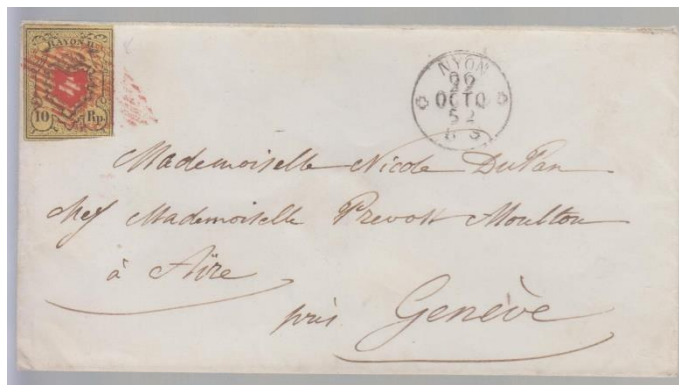 RAYON II
10 Rp.
NYON
22
OCTO
52
Mademoiselle Nicole DuPan
chez Mademoiselle Prevost Moulton
à Aïre
près Genève